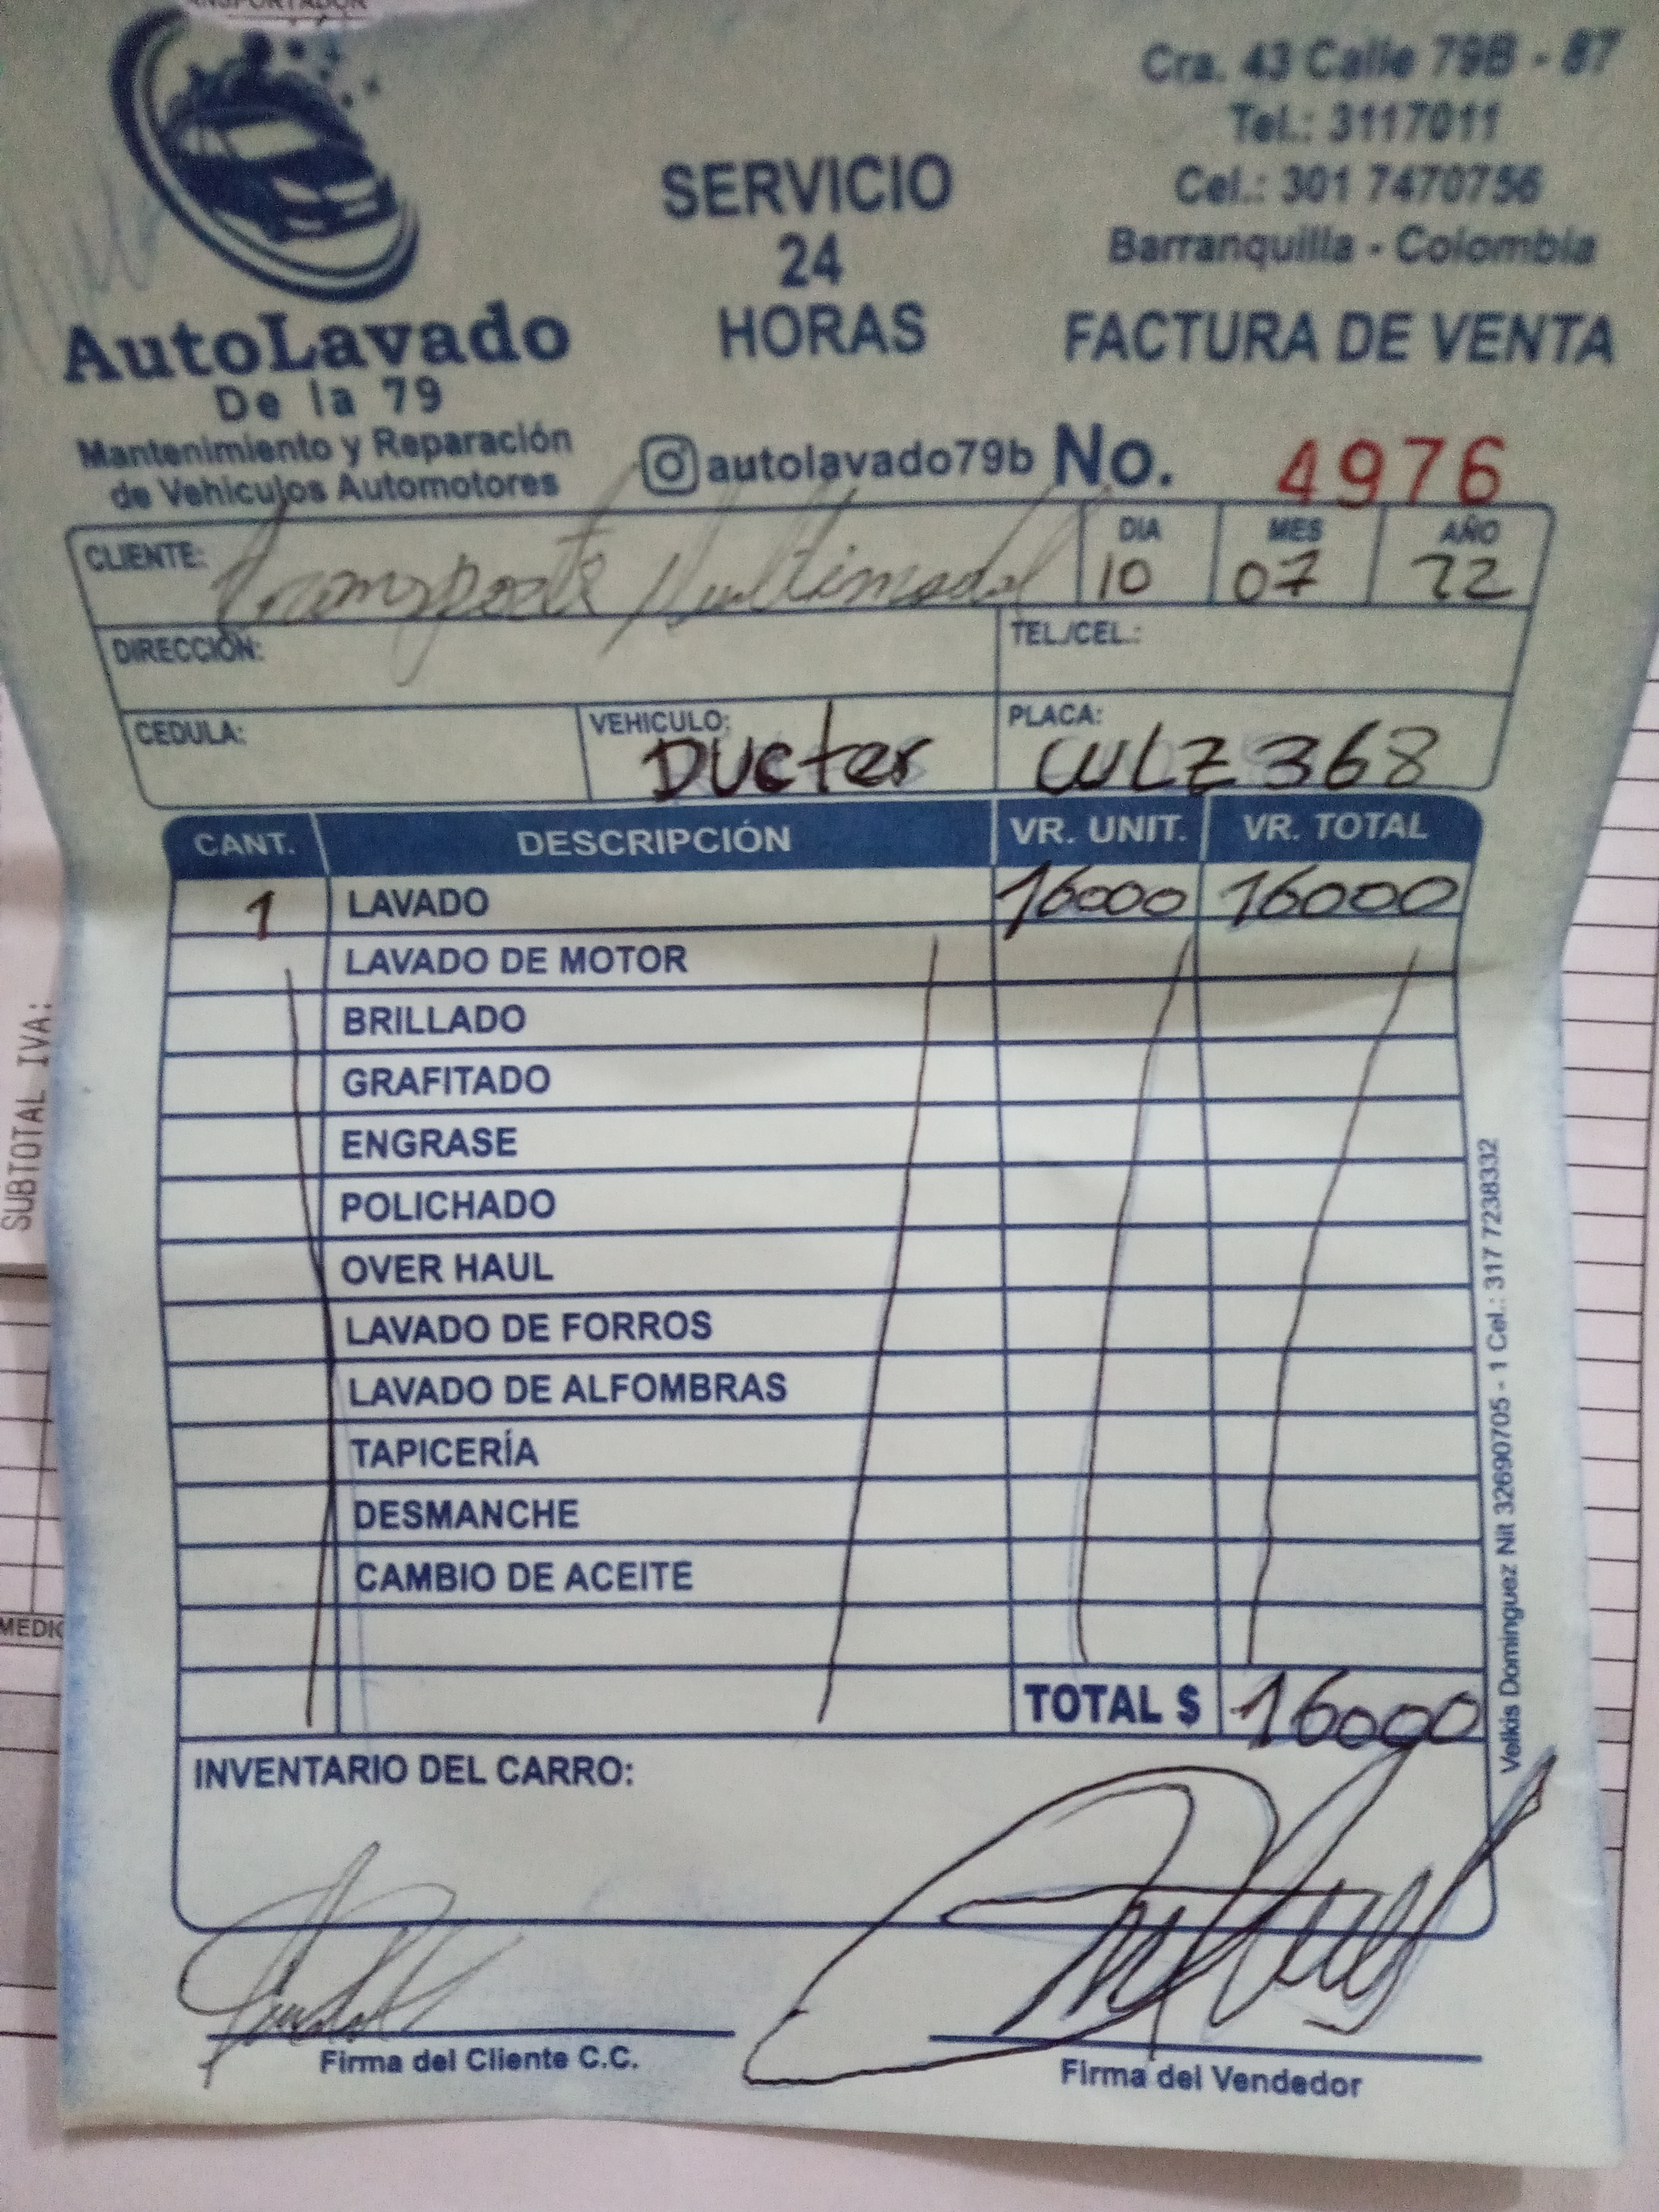 Cra. 43 Calle 79B - 87
Tel.: 3117011
Cel.: 301 7470756
Barranquilla - Colombia
SERVICIO
24
HORAS
AutoLavado
De la 79
Mantenimiento y Reparación
de Vehículos Automotores
FACTURA DE VENTA
autolavado79b No. 4976
CLIENTE: Transporte Multimodal DIA 10 MES 07 AÑO 22
DIRECCIÓN: TEL./CEL.:
CEDULA: VEHICULO: Ducter PLACA: WLZ368
CANT. DESCRIPCIÓN VR. UNIT. VR. TOTAL
1 LAVADO 16000 16000
LAVADO DE MOTOR
BRILLADO
GRAFITADO
ENGRASE
POLICHADO
OVER HAUL
LAVADO DE FORROS
LAVADO DE ALFOMBRAS
TAPICERÍA
DESMANCHE
CAMBIO DE ACEITE
TOTAL $ 16000
INVENTARIO DEL CARRO:
Firma del Cliente C.C. Firma del Vendedor
Velkis Dominguez Nit 32690705 - 1 Cel.: 317 7238332
SUBTOTAL IVA: